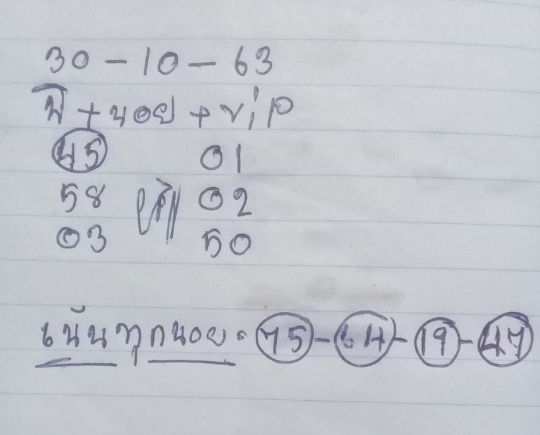 30-10-63
ปี+นอย+vip
45 01
58 02
03 50
เน้นทุกนอย. 75-64-19-47